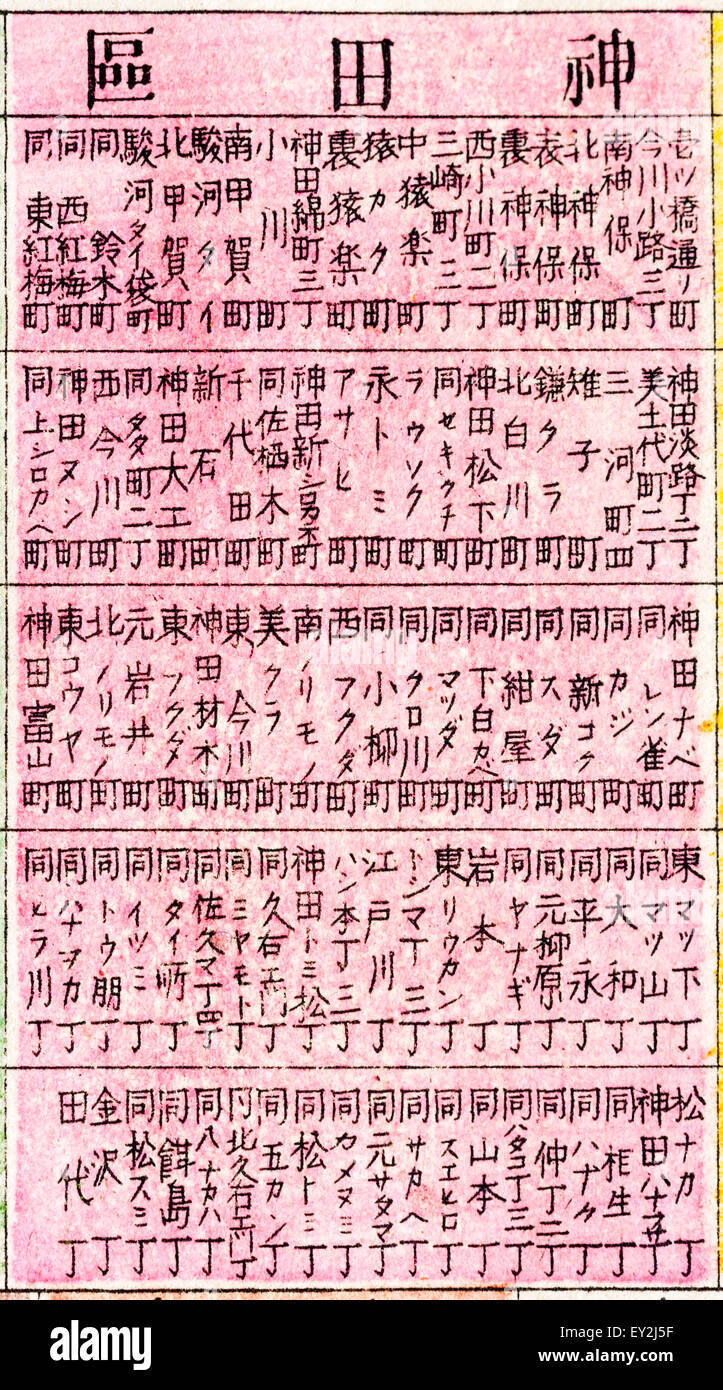 神田區
壱ツ橋通リ町
今川小路三丁
南神保町
北神保町
表神保町
裏神保町
西小川町二丁
三崎町三丁
中猿楽町
猿カク町
裏猿楽町
神田錦町三丁
小川町
南甲賀町
駿河タイ町
北甲賀町
駿河タイ袋町
同鈴木町
同西紅梅町
同東紅梅町
神田淡路丁二丁
美土代町二丁
三河町四
雉子町
鎌クラ町
北白川町
神田松下町
同セキクチ町
ラウソク町
永トミ町
アサヒ町
神田新シロカ子町
同佐柄木町
千代田町
新石町
神田大工町
同タ町二丁
西今川町
神田ヌシ町
同上シロカヘ町
神田ナベ町
同レン雀町
同カジ町
同新コク町
同スダ町
同紺屋町
同下白カベ町
同マツダ町
同クロ川町
同小柳町
西フクダ町
南ノリモノ町
美クラ町
東今川町
神田材木町
東フクダ町
元岩井町
北ノリモノ町
東コウヤ町
神田富山町
東マツ下丁
同マツ山丁
同大和丁
同平永丁
同元柳原丁
同ヤナギ丁
岩本丁
東リウカン丁
トシマ丁三丁
江戸川丁
ハシ本丁三丁
神田トミ松丁
同久右エ門丁
同ミヤモト丁
同佐久マ丁四丁
同タイ所丁
同イツミ丁
同トウ朋丁
同ハナヲカ丁
同ヒラ川丁
松ナカ丁
同相生丁
同ハナタ丁
同仲丁二丁
同ハタコ丁三丁
同山本丁
同スエヒロ丁
同サカヘ丁
同元サクマ丁
同カメスミ丁
同松トミ丁
同五カン丁
同北久右エ門丁
同八ナカハ丁
同餌島丁
同松スミ丁
金沢丁
田代丁
alamy
Image ID: EY2J5F
www.alamy.com